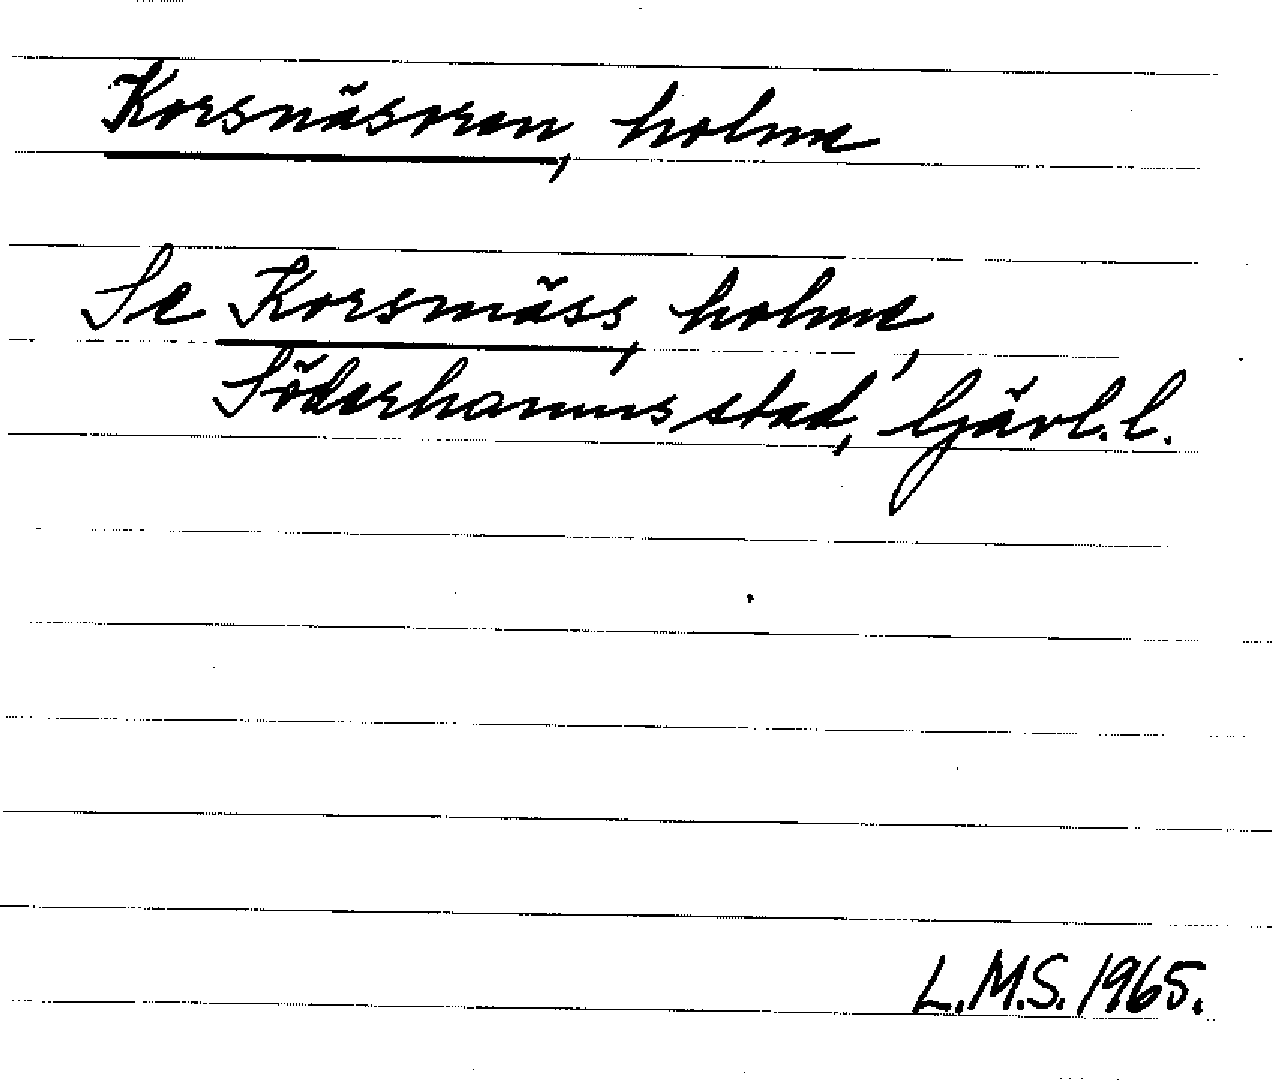 Korsnäsören, holme
Se Korsmäss, holme,
Söderhamns stad, Gävl.l.
L.M.S. 1965.